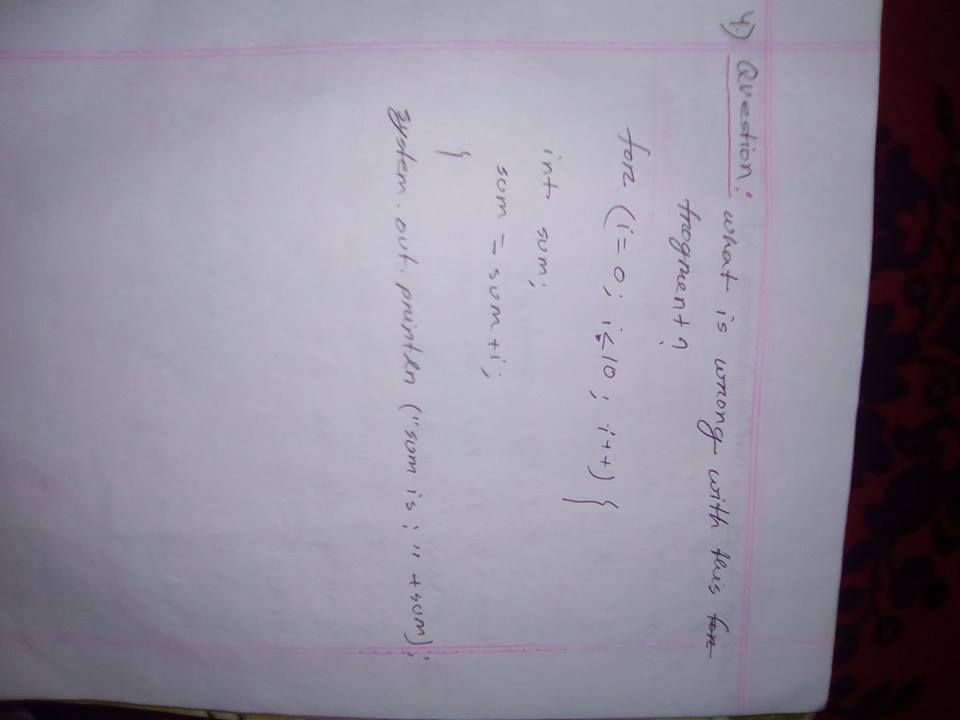 4.) Question: what is wrong with this for
fragment?
for (i = 0; i<10; i++) {
int sum;
sum = sum+i;
}
system.out.println ("sum is ; " +sum);